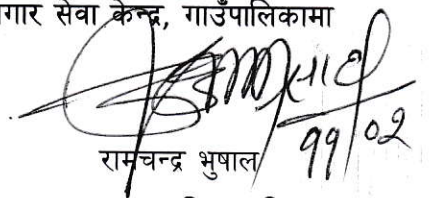 गार सेवा केन्द्र, गाउँपालिकामा
११/०२
रामचन्द्र भुषाल